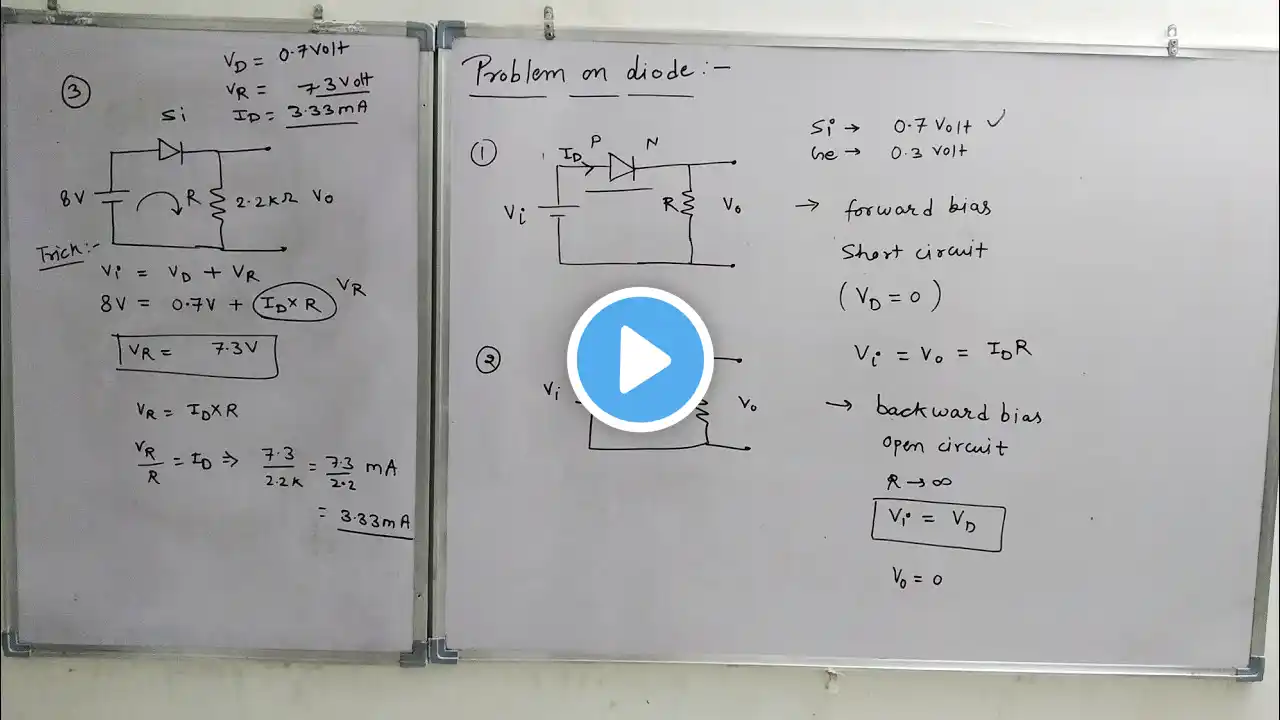 ③
V_D = 0.7 Volt
V_R = 7.3 Volt
I_D = 3.33mA
Si
8V
R
2.2KΩ
V₀
Trick:-
Vi = V_D + V_R
8V = 0.7V + I_D×R
V_R
V_R = 7.3V
V_R = I_D×R
V_R/R = I_D ⇒ 7.3/2.2K = 7.3/2.2 mA
= 3.33mA
Problem on diode:-
①
I_D
P
N
Vi
R
V₀
Si → 0.7 Volt ✓
Ge → 0.3 Volt
→ forward bias
Short circuit
(V_D = 0)
Vi = V₀ = I_D R
②
Vi
V₀
→ backward bias
Open circuit
R → ∞
Vi = V_D
V₀ = 0